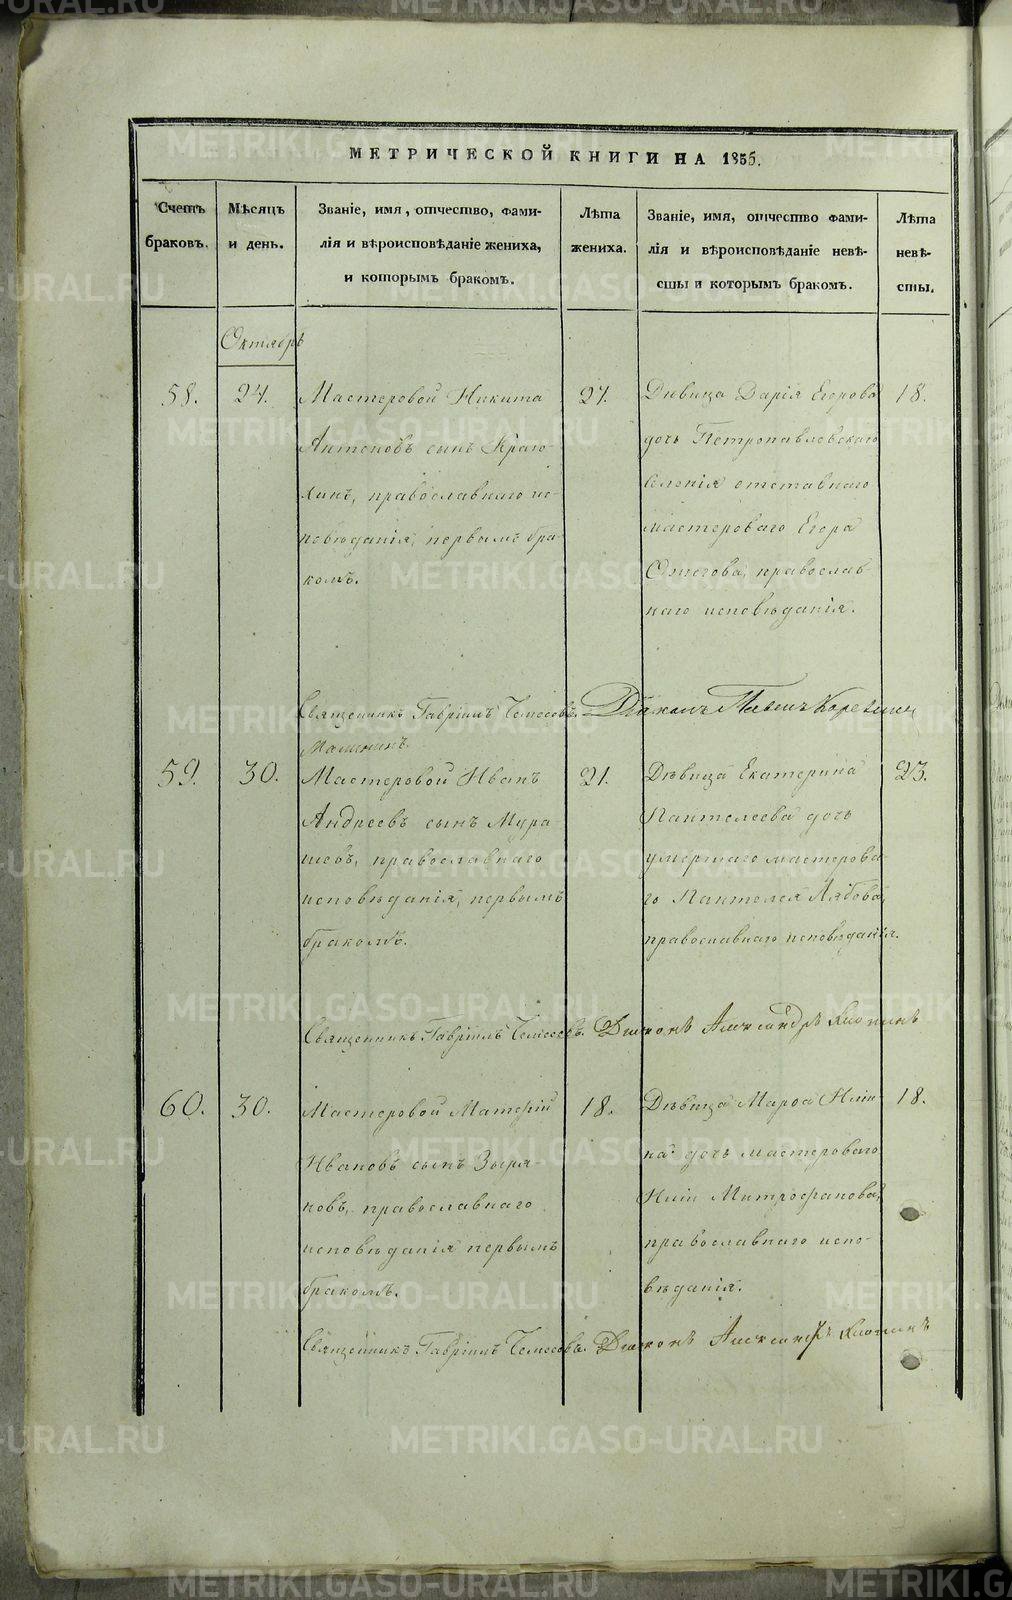 МЕТРИЧЕСКОЙ КНИГИ НА 1855.
Счетъ браковъ.
Мѣсяцъ и день.
Званіе, имя, отчество, фами-
лія и вѣроисповѣданіе жениха,
и которымъ бракомъ.
Лѣта жениха.
Званіе, имя, отчество фами-
лія и вѣроисповѣданіе невѣ-
сты и которымъ бракомъ.
Лѣта невѣ-
сты.
Октябрь
58.
24.
Мастеровой Никита
Антоновъ сынъ
православнаго ис-
повѣданія, первымъ бра-
комъ.
27.
Дѣвица Дарія Егорова
дочь Петропавловскаго
селенія отставнаго
мастероваго Егора
Ожегова, православ
наго исповѣданія.
18.
Священникъ Гавріилъ Чемесовъ.
Діаконъ Павелъ
59.
30.
Мастеровой Иванъ
Андреевъ сынъ Мура
шевъ, православнаго
исповѣданія, первымъ
бракомъ.
21.
Дѣвица Екатерина
Пантелеева дочь
умершаго мастерова
го Пантелея
православнаго исповѣданія.
23.
Священникъ Гавріилъ Чемесовъ.
Діаконъ Александръ
60.
30.
Мастеровой
Ивановъ сынъ Зыря
новъ, православнаго
исповѣданія первымъ
бракомъ.
18.
Дѣвица Марѳа Иліи
на дочь мастероваго
Иліи Митрофанова,
православнаго испо-
вѣданія.
18.
Священникъ Гавріилъ Чемесовъ.
Діаконъ Александръ
METRIKI.GASO-URAL.RU